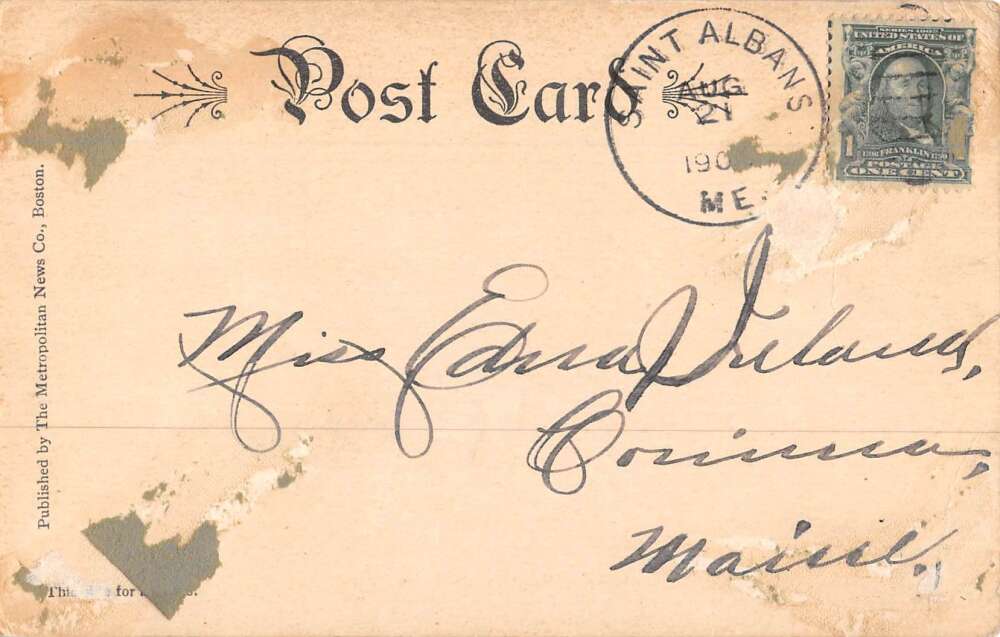 Post Card
SAINT ALBANS
AUG
190
ME.
SERIES 1902
UNITED STATES OF
AMERICA
1 FRANKLIN 1
POSTAGE
ONE CENT
Published by The Metropolitan News Co., Boston.
Miss Edna Ireland,
Corinna,
Maine.
for